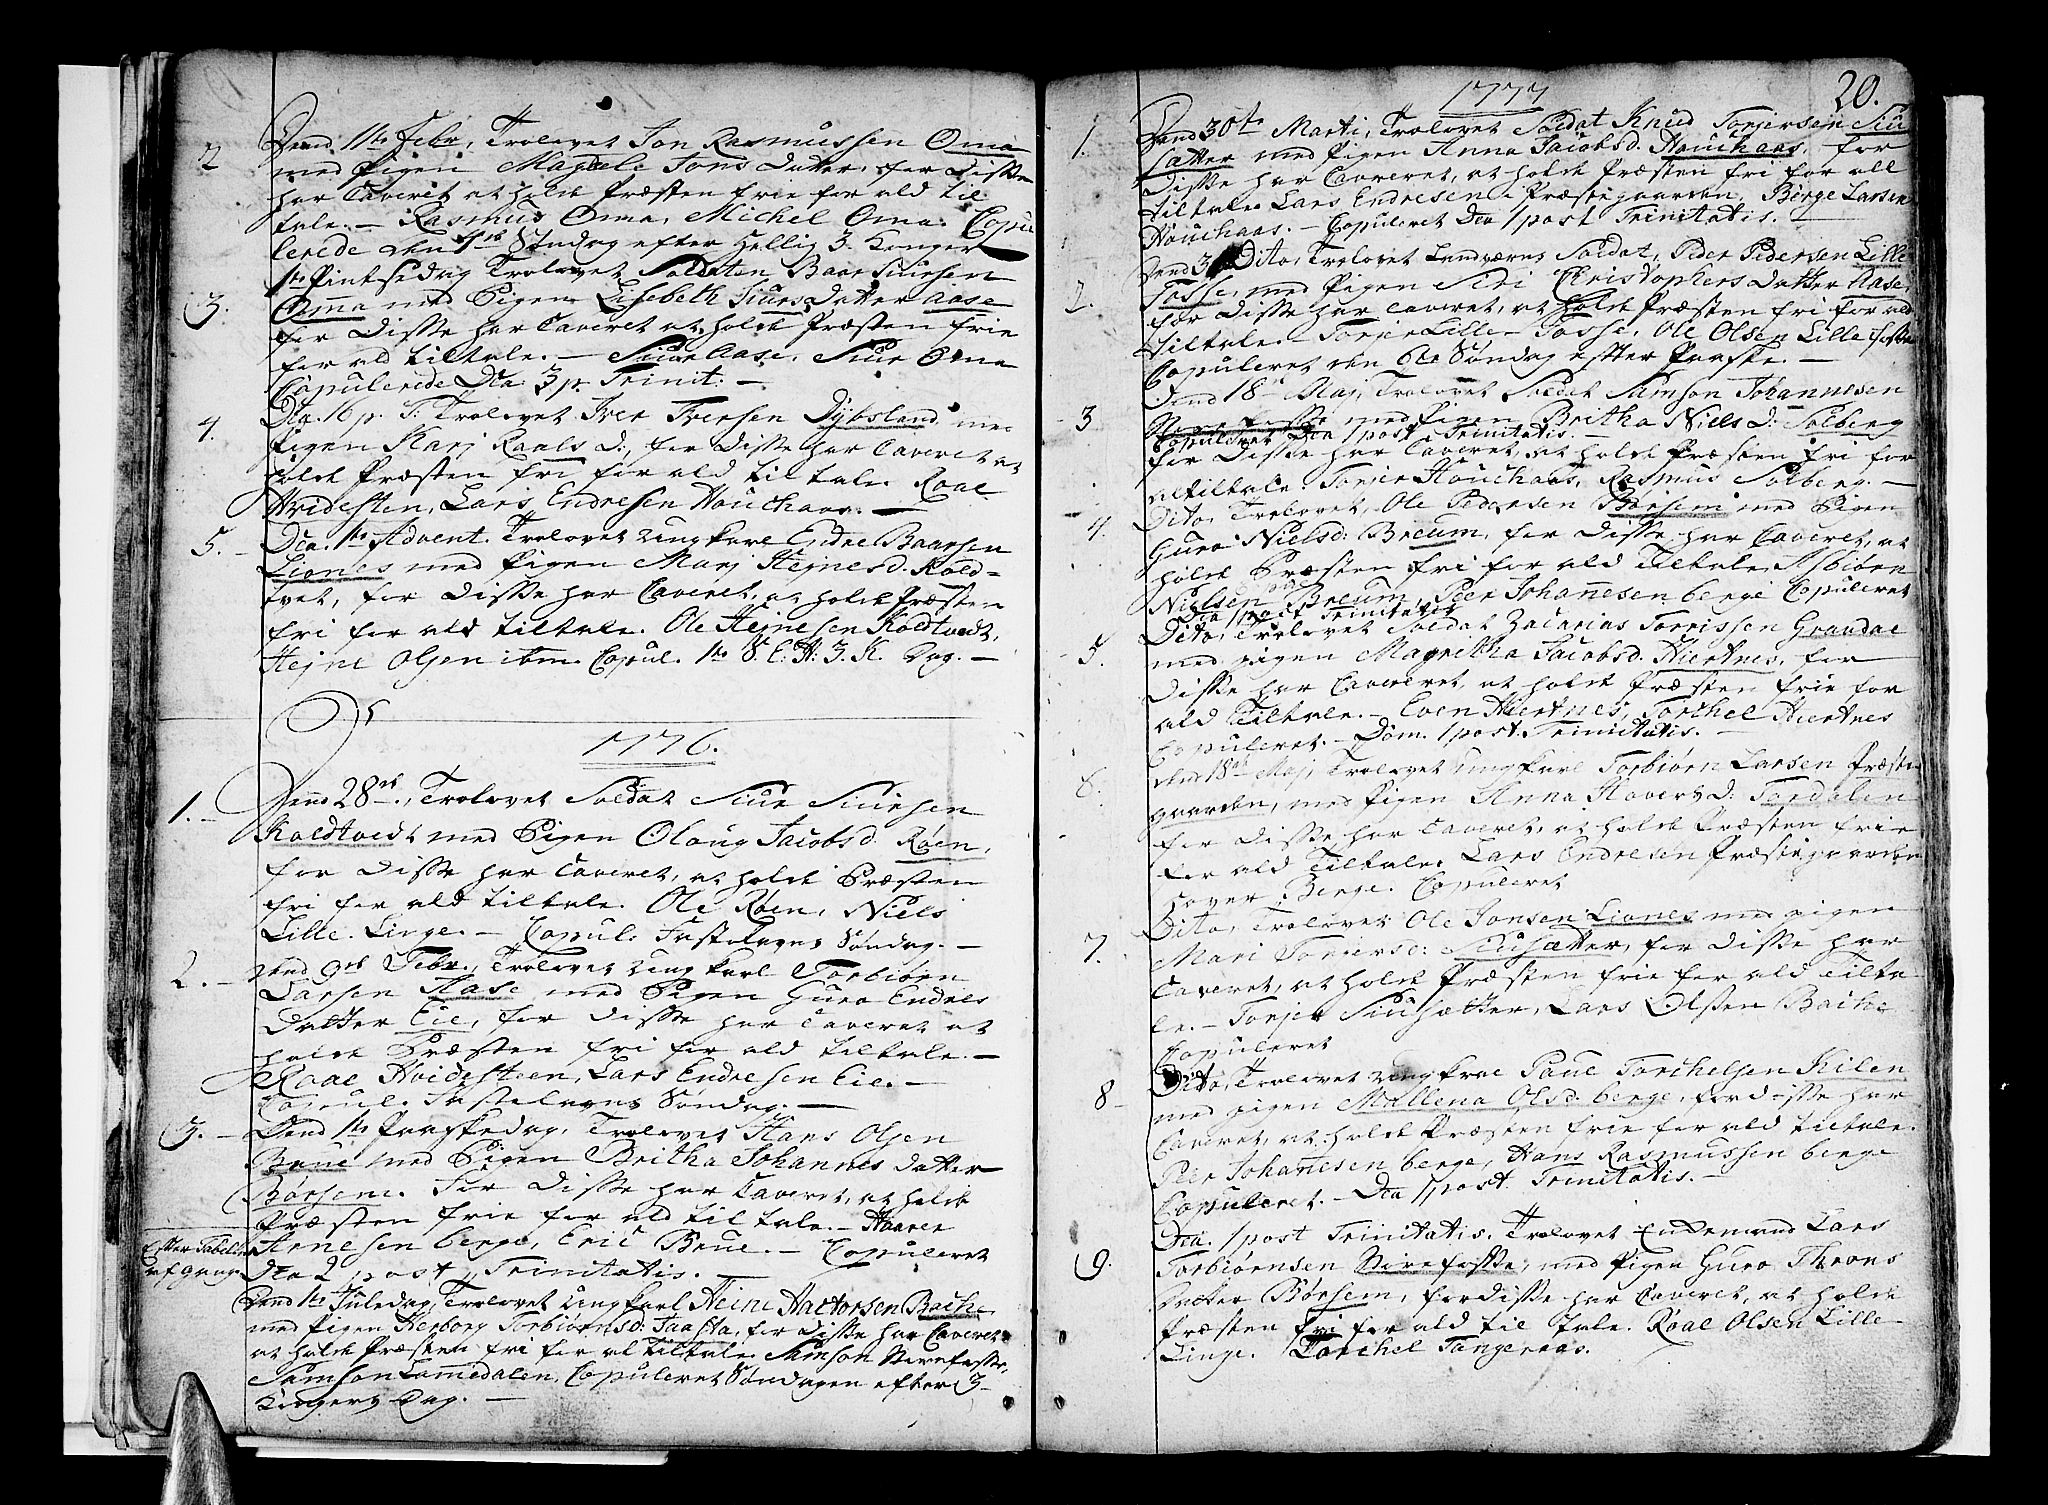 2 Dend 1te Febr, Trolovet Jon Rasmussen Oma
med Pigen Magdele Jons Datter, for Disse
har Caveret at holde Præsten frie for ald til
tale. – Rasmus Oma, Michel Oma. Copu
lerede den 1te Søndag efter Hellig 3 Konger
1te Pintsedag Trolovet Soldaten Baar Siursen
3. Omma med Pigen Lisebeth Siurs Datter Aase
for Disse har Caveret at holde Præsten frie
for ald tiltale. – Siur Aase, Siur Oma
Copulerede Dca: 3 p. Trinit: –
4. Dca. 16 p. T: Trolovet Iver Iversen Dybsland med
Pigen Marj Roals D:, for Disse har Caveret at
holde Præsten fri for ald tiltale Roal
Hvidesten, Lars Endresen Houchaas. –
5. – Dca. 1te Advent. Trolovet ungkarl Endre Baarsen
Liones med Pigen Marj Hejnesd. Kold=
tvet, for Disse har Caveret, at holde Præsten
fri for ald tiltale. Ole Hejnesen Koldtvedt,
Hejne Olsen ibm. Copul. 1te S. E. H. 3. K. Dag. –
1776.
1. – Dend 28de, Trolovet Soldat Siur Siursen
Koldtvedt med Pigen Oloug Jacobsd. Røen,
for Disse har Caveret, at holde Præsten
fri for ald tiltale. Ole Røen, Niels
Lille Linge. – Copul. Fastelavns Søndag. –
2. – Dend 9de Febr., Trolovet ungkarl Torbiørn
Larsen Aase med Pigen Guro Endres
Datter Eie, for Disse har Caveret at
holde Præsten fri for ald tiltale. –
Roal Hvidesteen, Lars Endresen Eie. –
Copul. Fastelavns Søndag. –
3. – Dend 1te Paaskedag, Trolovet Hans Olsen
Brue med Pigen Britha Johannes Datter
Børsem. for Disse har Caveret, at holde
Præsten frie for ald tiltale. – Haaver
Efter Tabelens Arnesen berge, Eric Brue. – Copuleret
afgang Dca 2 post Trinitatis. –
Dend 1te Juledag, Trolovet ungkarl Heine Hactorsen Bache
med Pigen Herborg Torbiørnsd: Taasta, for Disse har Caveret
at holde Præsten fri for al tiltale Samson Nerefosse,
Samson Lamedalen, Copuleret Søndagen efter 3
Kongers Dag. –
1777 20.
1. Dend 30te Marti, Trolovet Soldat Knud Torjersen Siu
sætter med Pigen Anna Jacobsd. Houchaas, for
Disse har Caveret, at holde Præsten fri for all
tiltale Lars Endresen Præstegaarden, Børge Larsen
Houchaas. – Copuleret Dca 1 post Trinitatis.
Dend Dito, Trolovet Landværns Soldat, Peder Pedersen Lille
2. Fosse, med Pigen Siri Christophers Datter Aase,
for Disse har Caveret, at holde Præsten fri for ald
tiltale. Torjer Lille Fosse, Ole Olsen Lille Fosse
Copuleret den 6te Søndag efter Paaske. –
Dend 18 Maj, Trolovet Soldat Samson Johannesen
3 Nerefosse med Pigen Britha Niels D: Solberg
Copuleret Dca 1 post Trinitatis. –
for Disse har Caveret, at holde Præsten fri for
al tiltale. Torjer Houchaas, Rasmus Solberg. –
4. Dito, Trolovet, Ole Pedersen Børsem med Pigen
Guro Nielsd: Breum, for Disse har Caveret, at
holde Præsten fri for ald Tiltale Asbiørn
Nielsen Breum, Peer Johannesen berge Copuleret
Dca 1 post Trinitatis
5. Dito, Trolovet Soldat Zacarias Torrissen Grøndal
med pigen Magretha Jacobsd. Hiertnes, for
Disse har Caveret, at holde Præsten frie for
ald Tiltale. – Even Hiertnes, Torchel Hiertnes
Copuleret. – Dom. 1 post. Trinitatis. –
6. dend 18de Maj, Trolovet ungkarl Torbiørn Larsen Præste
gaarden, med Pigen Anna Havers D: Tordalen
for Disse har Caveret, at holde Præsten frie
for ald Tiltale. Lars Endresen Præstegaarden
Hover Berge. Copuleret
7. Dito, Trolovet Ole Jonsen Lione med pigen
Mari Torjersd: Siusætter, for disse har
Caveret, at holde Præsten frie for ald Tilta
le. – Torjer Siusætter, Lars Olsen Bache
Copuleret
8 – Dito, Trolovet ungkarl Poul Torchelsen Kilen
med pigen Mallena Olsd. berge, for disse har
Caveret, at holde Præsten frie for ald tiltale.
Peer Johanesen berge, Hans Rasmussen berge
Copuleret. – Dca 1 post. Trinitatis. –
Dca. 1 post Trinitatis. Trolovet Enkemand Lars
9. Torbiørnsen Nerefosse, med Pigen Guro Throns
Datter Børsem, for disse har Caveret, at holde
Præsten fri for ald til tale. Roal Olsen Lille
Linge. Torchel Tangeraas.